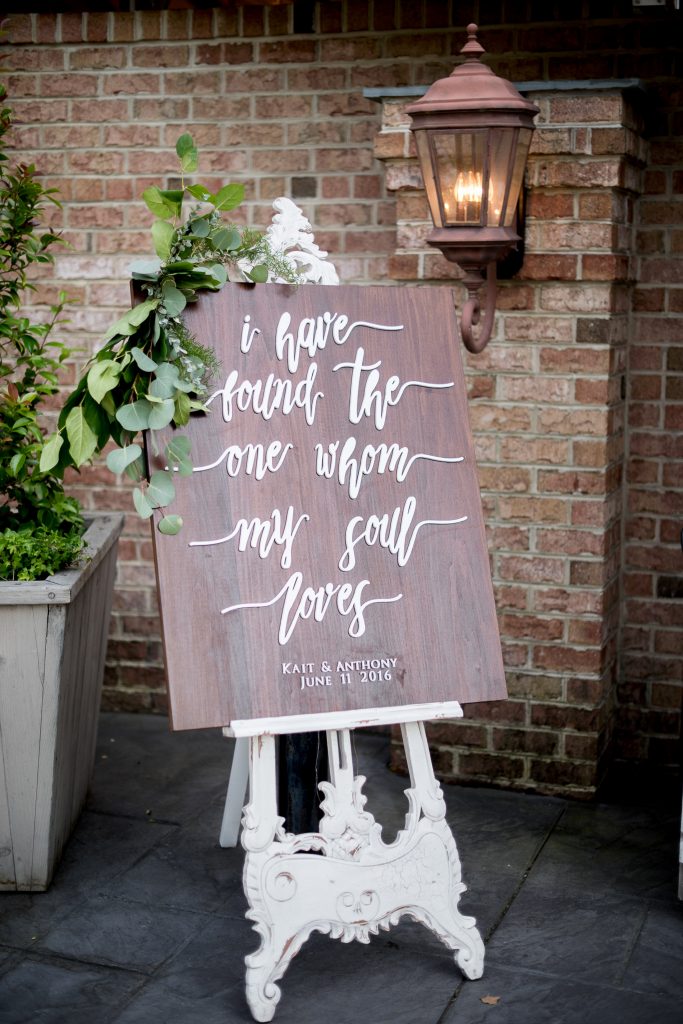 i have
found the
one whom
my soul
loves
KAIT & ANTHONY
JUNE 11 2016